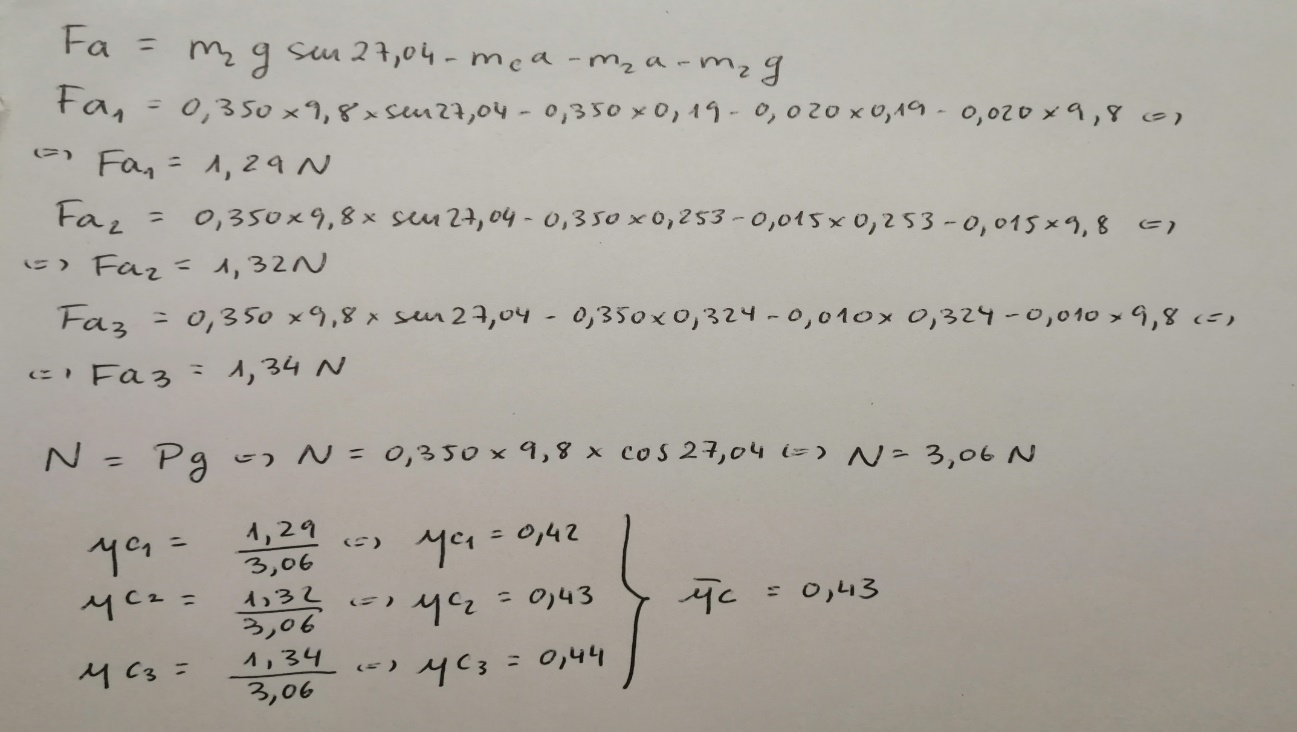 Fa = m₂ g sen 27,04 - mc a - m₂ a - m₂ g
Fa₁ = 0,350 × 9,8 × sen 27,04 - 0,350 × 0,19 - 0,020 × 0,19 - 0,020 × 9,8 (=)
(=) Fa₁ = 1,29 N
Fa₂ = 0,350 × 9,8 × sen 27,04 - 0,350 × 0,253 - 0,015 × 0,253 - 0,015 × 9,8 (=)
(=) Fa₂ = 1,32 N
Fa₃ = 0,350 × 9,8 × sen 27,04 - 0,350 × 0,324 - 0,010 × 0,324 - 0,010 × 9,8 (=)
(=) Fa₃ = 1,34 N
N = Pg (=) N = 0,350 × 9,8 × cos 27,04 (=) N = 3,06 N
μc₁ = 1,29/3,06 (=) μc₁ = 0,42
μc₂ = 1,32/3,06 (=) μc₂ = 0,43 } μ̅c = 0,43
μc₃ = 1,34/3,06 (=) μc₃ = 0,44